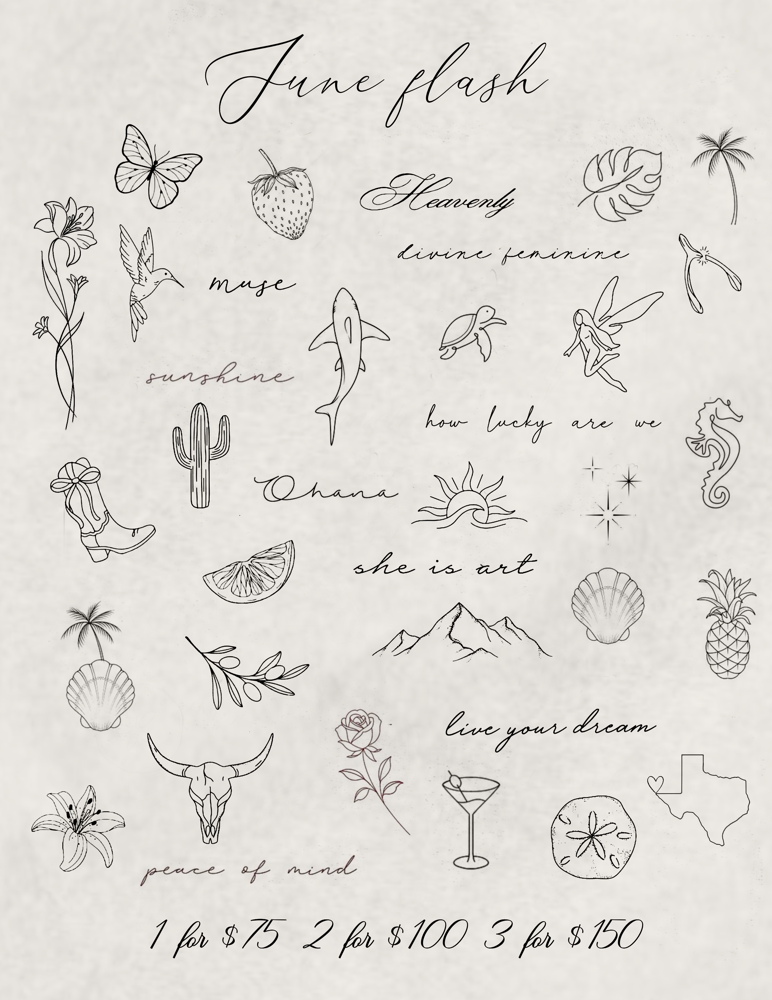 June flash
Heavenly
divine feminine
muse
sunshine
how lucky are we
Ohana
she is art
live your dream
peace of mind
1 for $75 2 for $100 3 for $150